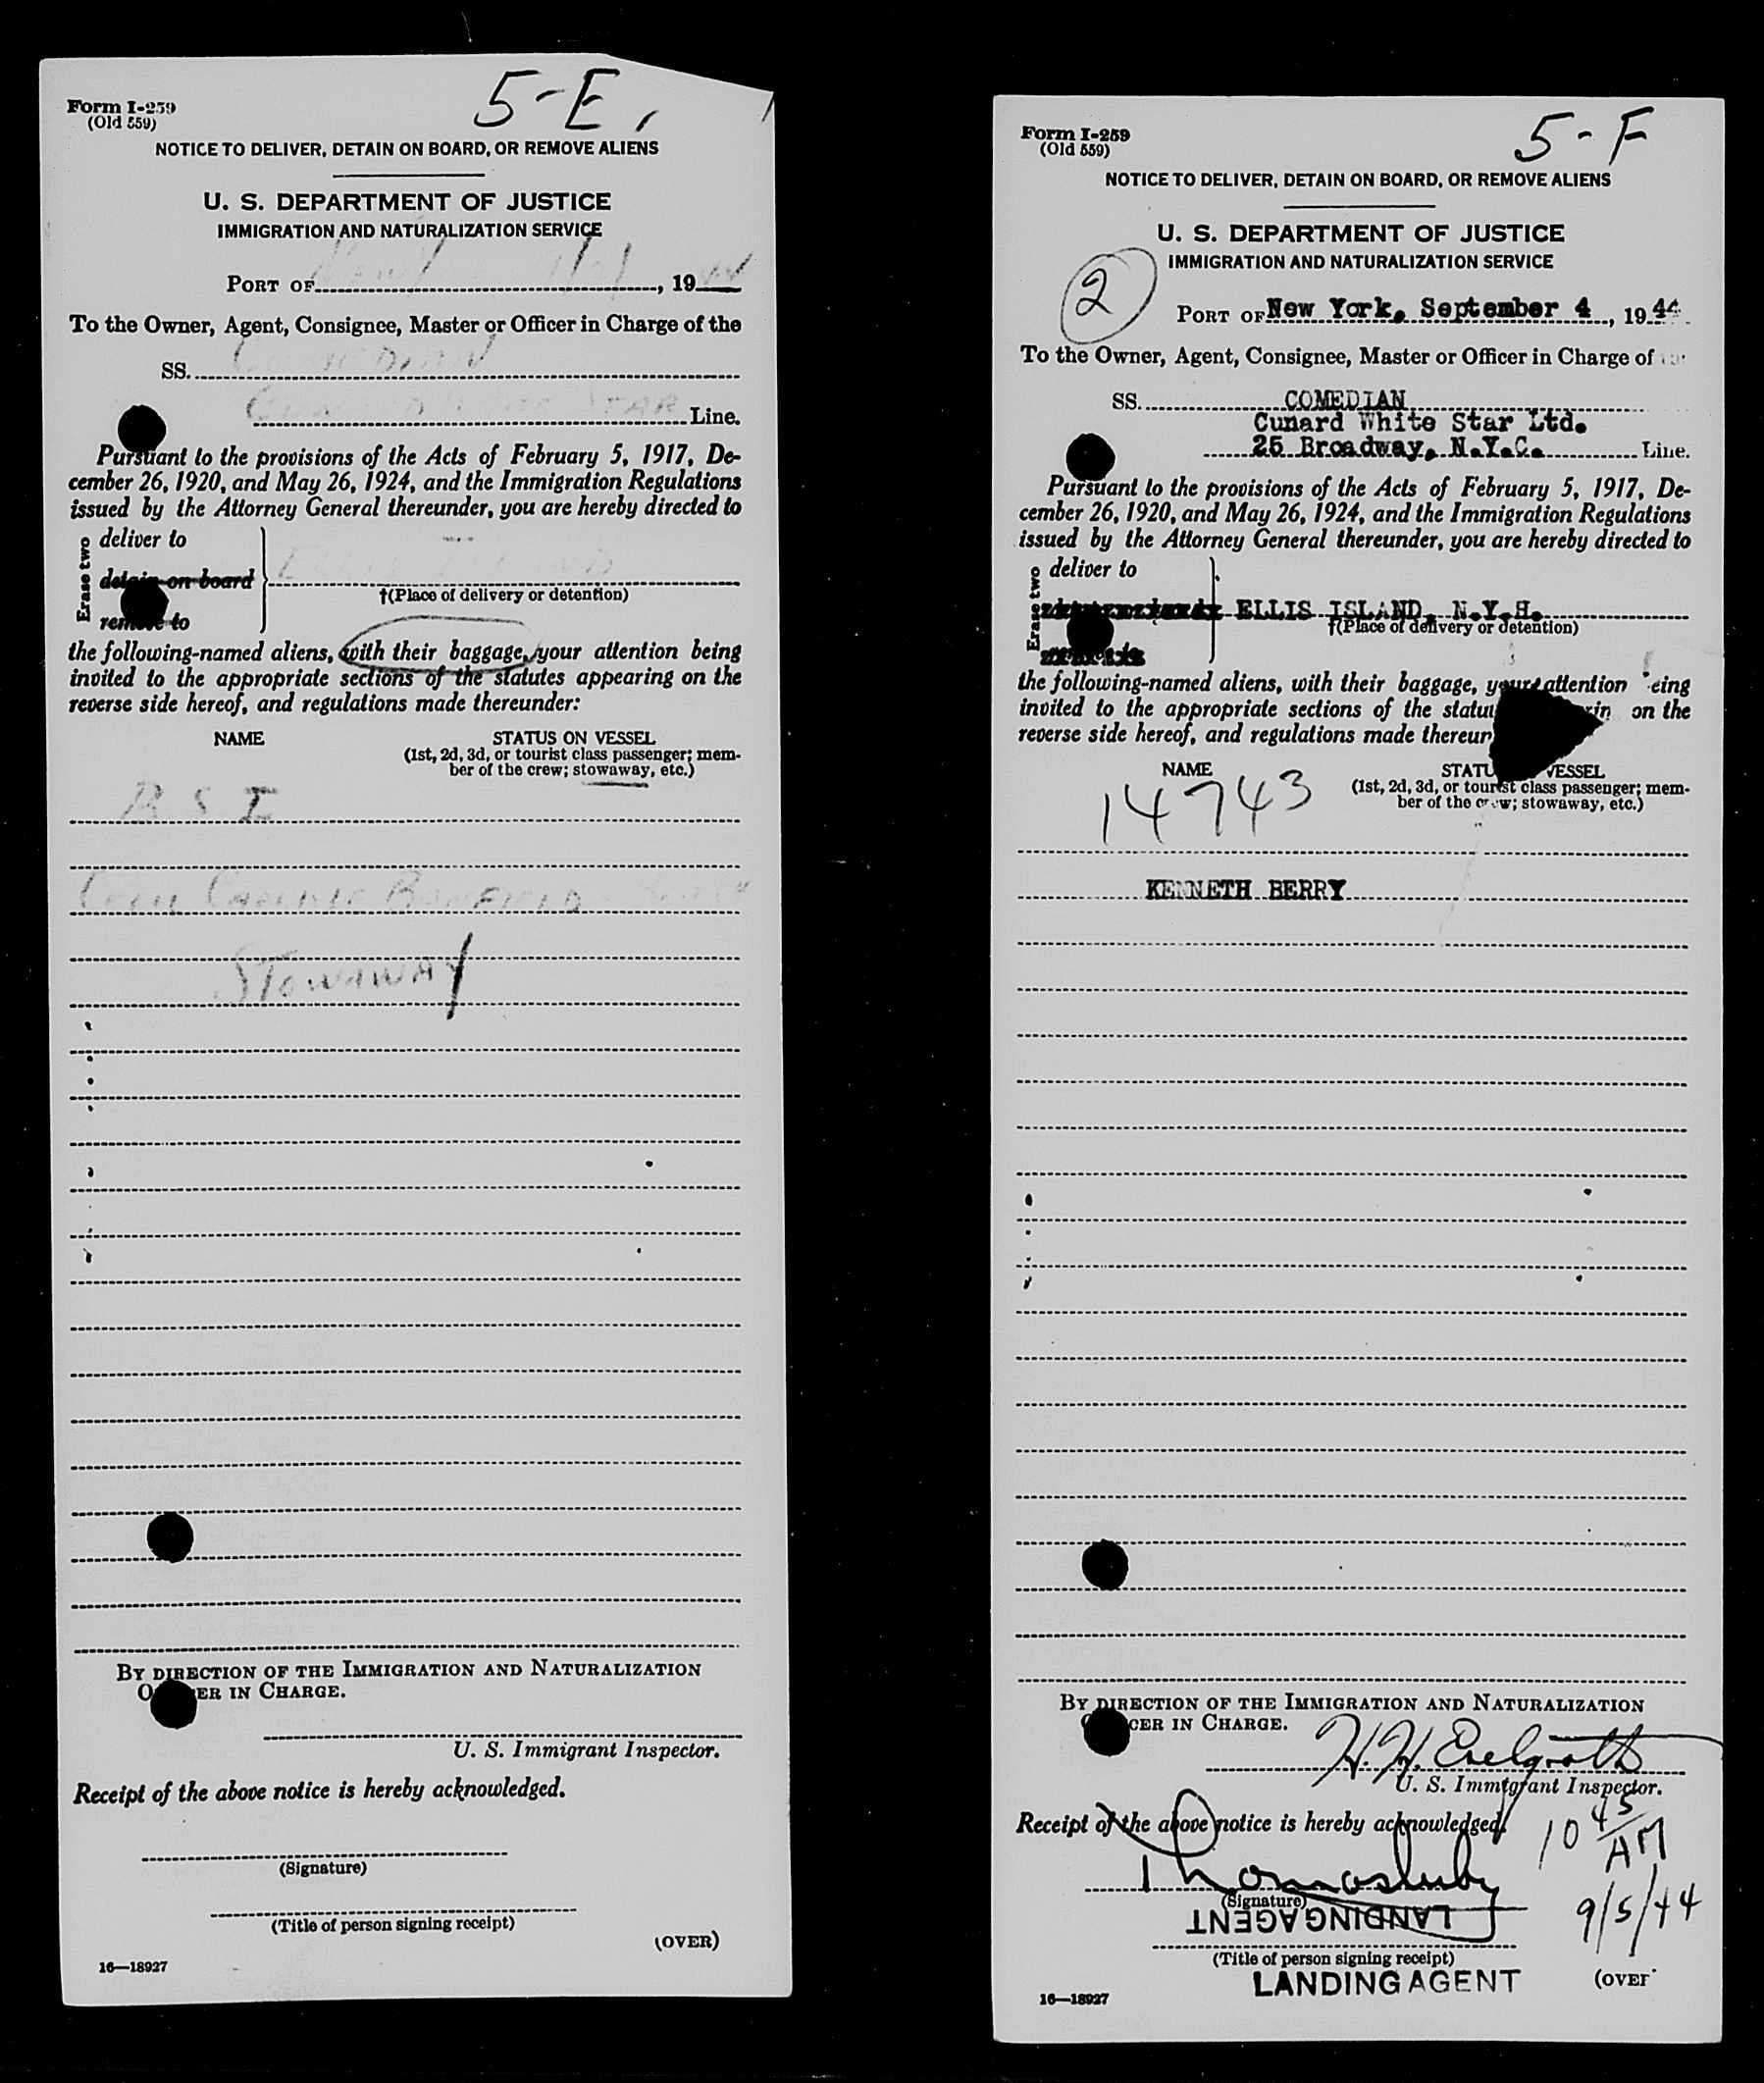 5-E,
Form I-259
(Old 559)
NOTICE TO DELIVER, DETAIN ON BOARD, OR REMOVE ALIENS
U. S. DEPARTMENT OF JUSTICE
IMMIGRATION AND NATURALIZATION SERVICE
PORT OF , 19 44
To the Owner, Agent, Consignee, Master or Officer in Charge of the
SS. COMEDIAN
STAR Line.
Pursuant to the provisions of the Acts of February 5, 1917, De-
cember 26, 1920, and May 26, 1924, and the Immigration Regulations
issued by the Attorney General thereunder, you are hereby directed to
Erase two
deliver to
detain on board
remove to
†(Place of delivery or detention)
the following-named aliens, with their baggage, your attention being
invited to the appropriate sections of the statutes appearing on the
reverse side hereof, and regulations made thereunder:
NAME
STATUS ON VESSEL
(1st, 2d, 3d, or tourist class passenger; mem-
ber of the crew; stowaway, etc.)
B S I
STOWAWAY
BY DIRECTION OF THE IMMIGRATION AND NATURALIZATION
OFFICER IN CHARGE.
U. S. Immigrant Inspector.
Receipt of the above notice is hereby acknowledged.
(Signature)
(Title of person signing receipt)
(OVER)
16—18927
5-F
Form I-259
(Old 559)
NOTICE TO DELIVER, DETAIN ON BOARD, OR REMOVE ALIENS
U. S. DEPARTMENT OF JUSTICE
IMMIGRATION AND NATURALIZATION SERVICE
2
PORT OF New York, September 4, 1944
To the Owner, Agent, Consignee, Master or Officer in Charge of the
SS. COMEDIAN
Cunard White Star Ltd.
25 Broadway, N.Y.C. Line.
Pursuant to the provisions of the Acts of February 5, 1917, De-
cember 26, 1920, and May 26, 1924, and the Immigration Regulations
issued by the Attorney General thereunder, you are hereby directed to
Erase two
deliver to
ELLIS ISLAND, N.Y.H.
†(Place of delivery or detention)
the following-named aliens, with their baggage, your attention being
invited to the appropriate sections of the on the
reverse side hereof, and regulations made
NAME
STATUS VESSEL
(1st, 2d, 3d, or tourist class passenger; mem-
ber of the crew; stowaway, etc.)
14743
KENNETH BERRY
BY DIRECTION OF THE IMMIGRATION AND NATURALIZATION
OFFICER IN CHARGE.
U. S. Immigrant Inspector.
Receipt of the above notice is hereby acknowledged.
10 45 AM
(Signature)
LANDING AGENT
9/5/44
(Title of person signing receipt)
LANDING AGENT
(OVER
16—18927